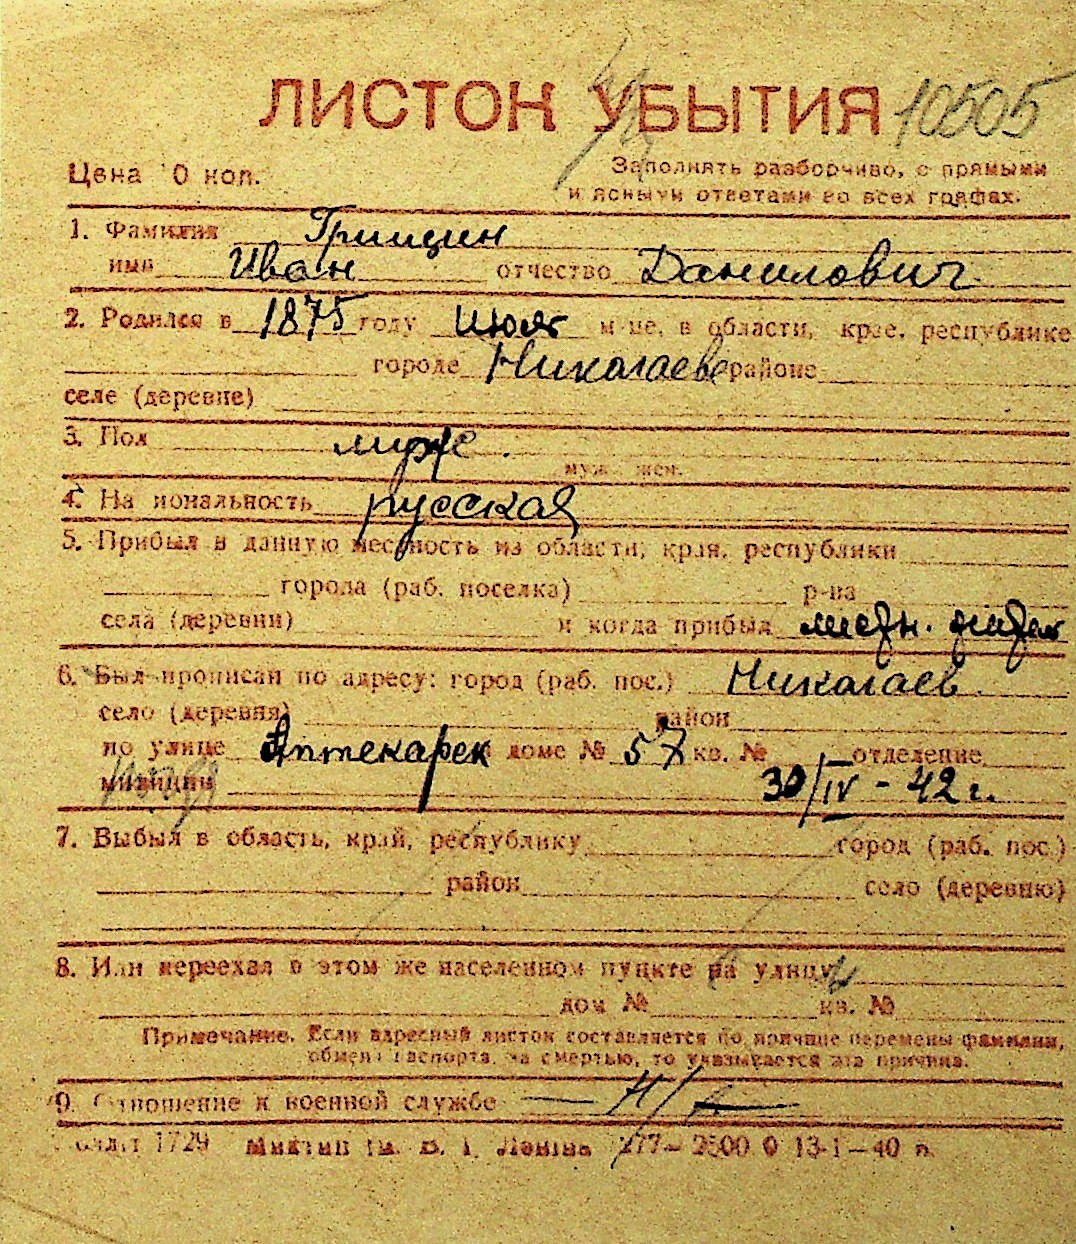 ЛИСТОК УБЫТИЯ 10505
Цена 10 коп. Заполнять разборчиво, с прямыми
и ясными ответами во всех графах.
1. Фамилия Грицин
имя Иван отчество Данилович
2. Родился в 1875 году июля м-це, в области, крае, республике
городе Николаеве районе
селе (деревне)
3. Пол муж.
муж. жен.
4. Национальность русская
5. Прибыл в данную местность из области, края, республики
города (раб. поселка) р-на
села (деревни) и когда прибыл местн. житель
6. Был прописан по адресу: город (раб. пос.) Николаев.
село (деревня) район
по улице Аптекарск доме № 57 кв. № отделение
милиции 30/IV - 42 г.
7. Выбыл в область, край, республику город (раб. пос.)
район село (деревню)
8. Или переехал в этом же населенном пункте на улицу
дом № кв. №
Примечание. Если адресный листок составляется по причине перемены фамилии,
обмена паспорта, за смертью, то указывается эта причина.
9. Отношение к военной службе — н/
1729 им. В. И. Ленина 277— 2500 0 13-1—40 п.